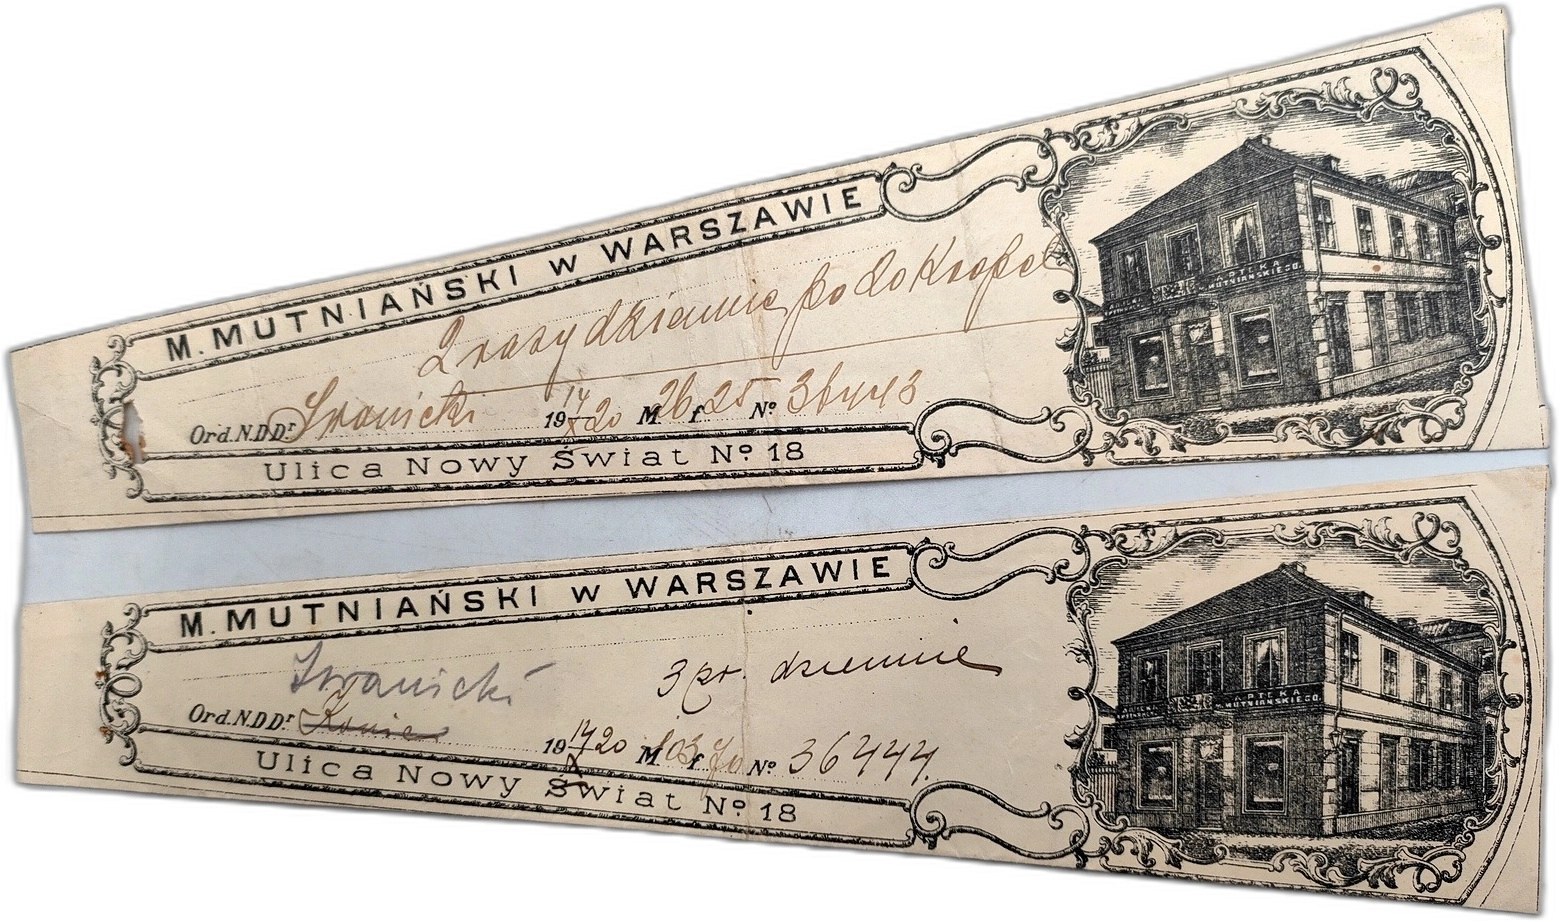 M. MUTNIAŃSKI W WARSZAWIE
2 razy dziennie po 20 kropel
Ord.N.D Dr Iwanicki 19 14/X 20 M 26 f. 25 No 36443
Ulica Nowy Świat No 18
APTEKA
MUTNIAŃSKIEGO
M. MUTNIAŃSKI W WARSZAWIE
Iwanicki 3 pr. dziennie
Ord.N.D Dr 19 14/X 20 M f. No 36444.
Ulica Nowy Świat No 18
APTEKA
MUTNIAŃSKIEGO